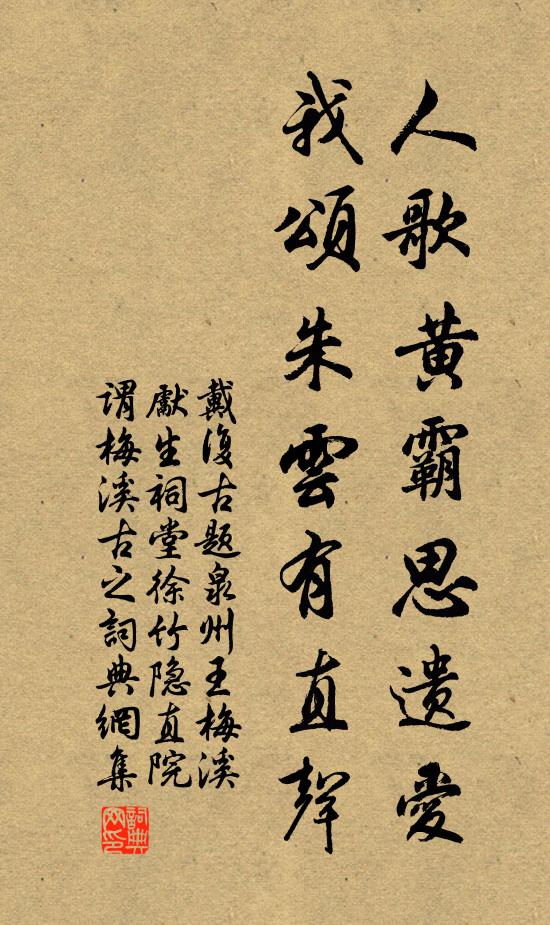 人歌黄霸思遺愛
我頌朱雲有直聲
戴復古题泉州王梅溪
獻生祠堂徐竹隐直院
谓梅溪古之詞典網集
詞典网印